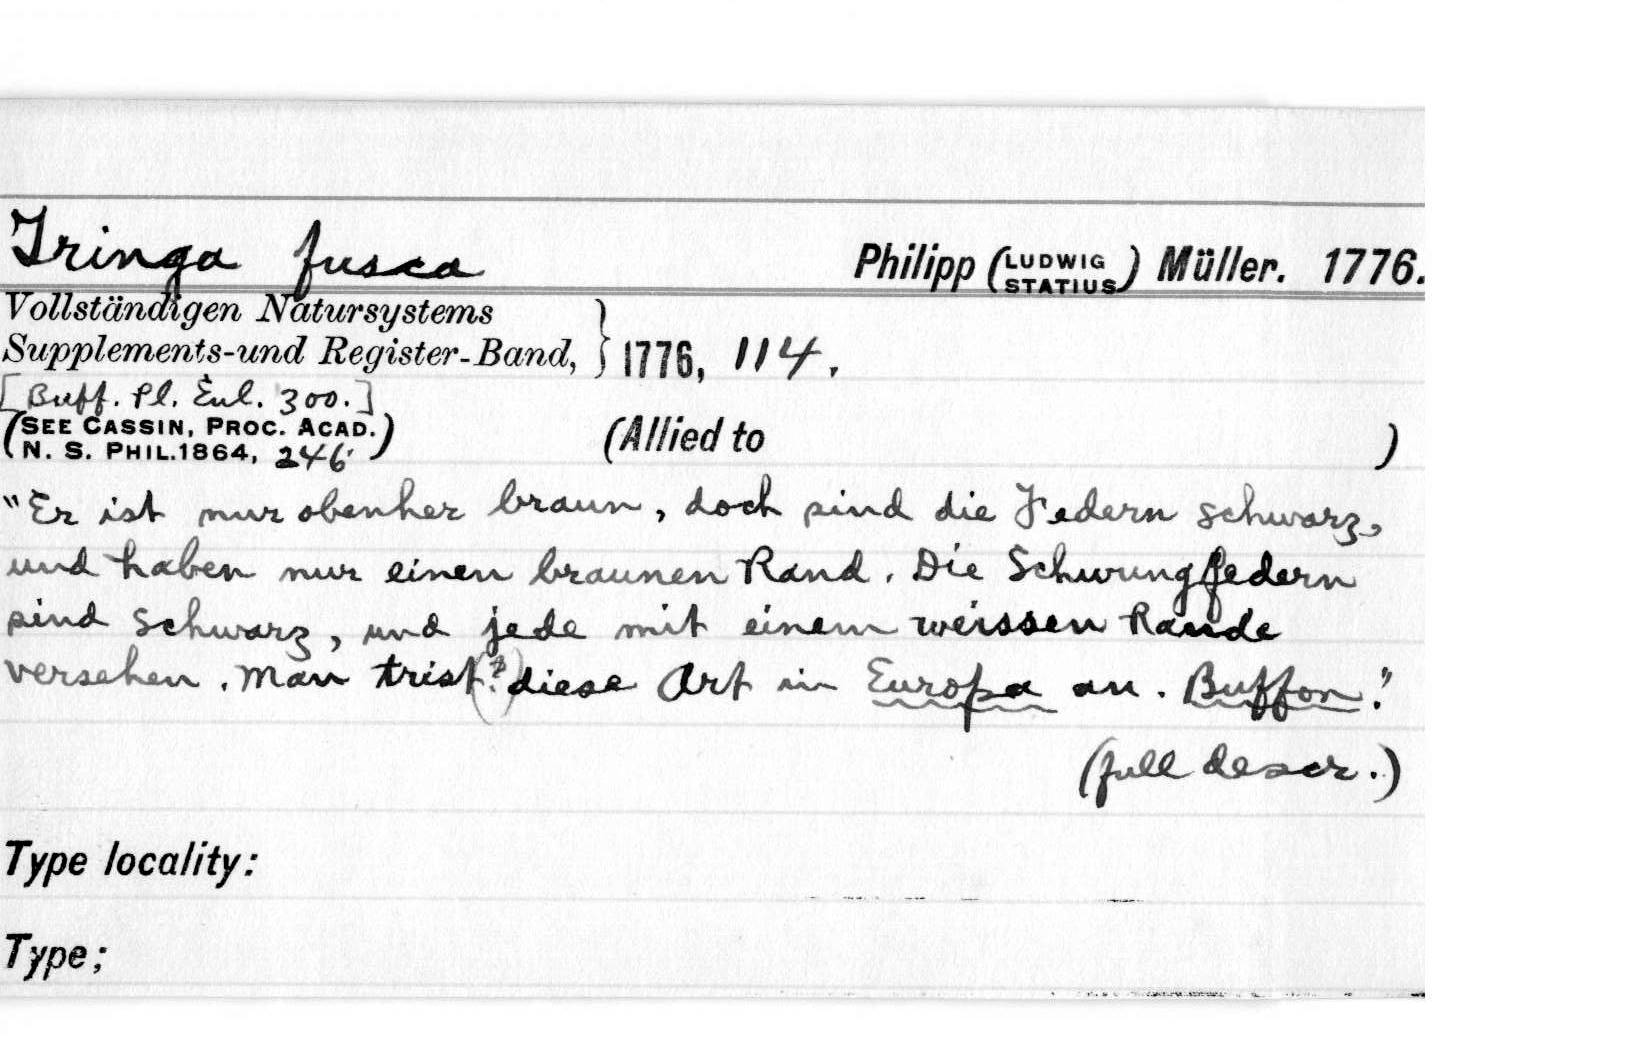 Tringa fusca
Philipp (LUDWIG STATIUS) Müller. 1776.
Vollständigen Natursystems
Supplements-und Register-Band, } 1776, 114.
[Buff. Pl. Enl. 300.]
(SEE CASSIN, PROC. ACAD.
N. S. PHIL. 1864, 246.)
(Allied to )
"Er ist nur obenher braun, doch sind die Federn schwarz,
und haben nur einen braunen Rand. Die Schwungfedern
sind schwarz, und jede mit einem weissen Rande
versehen. Man trist(?) diese Art in Europa an. Buffon."
(full descr.)
Type locality:
Type;